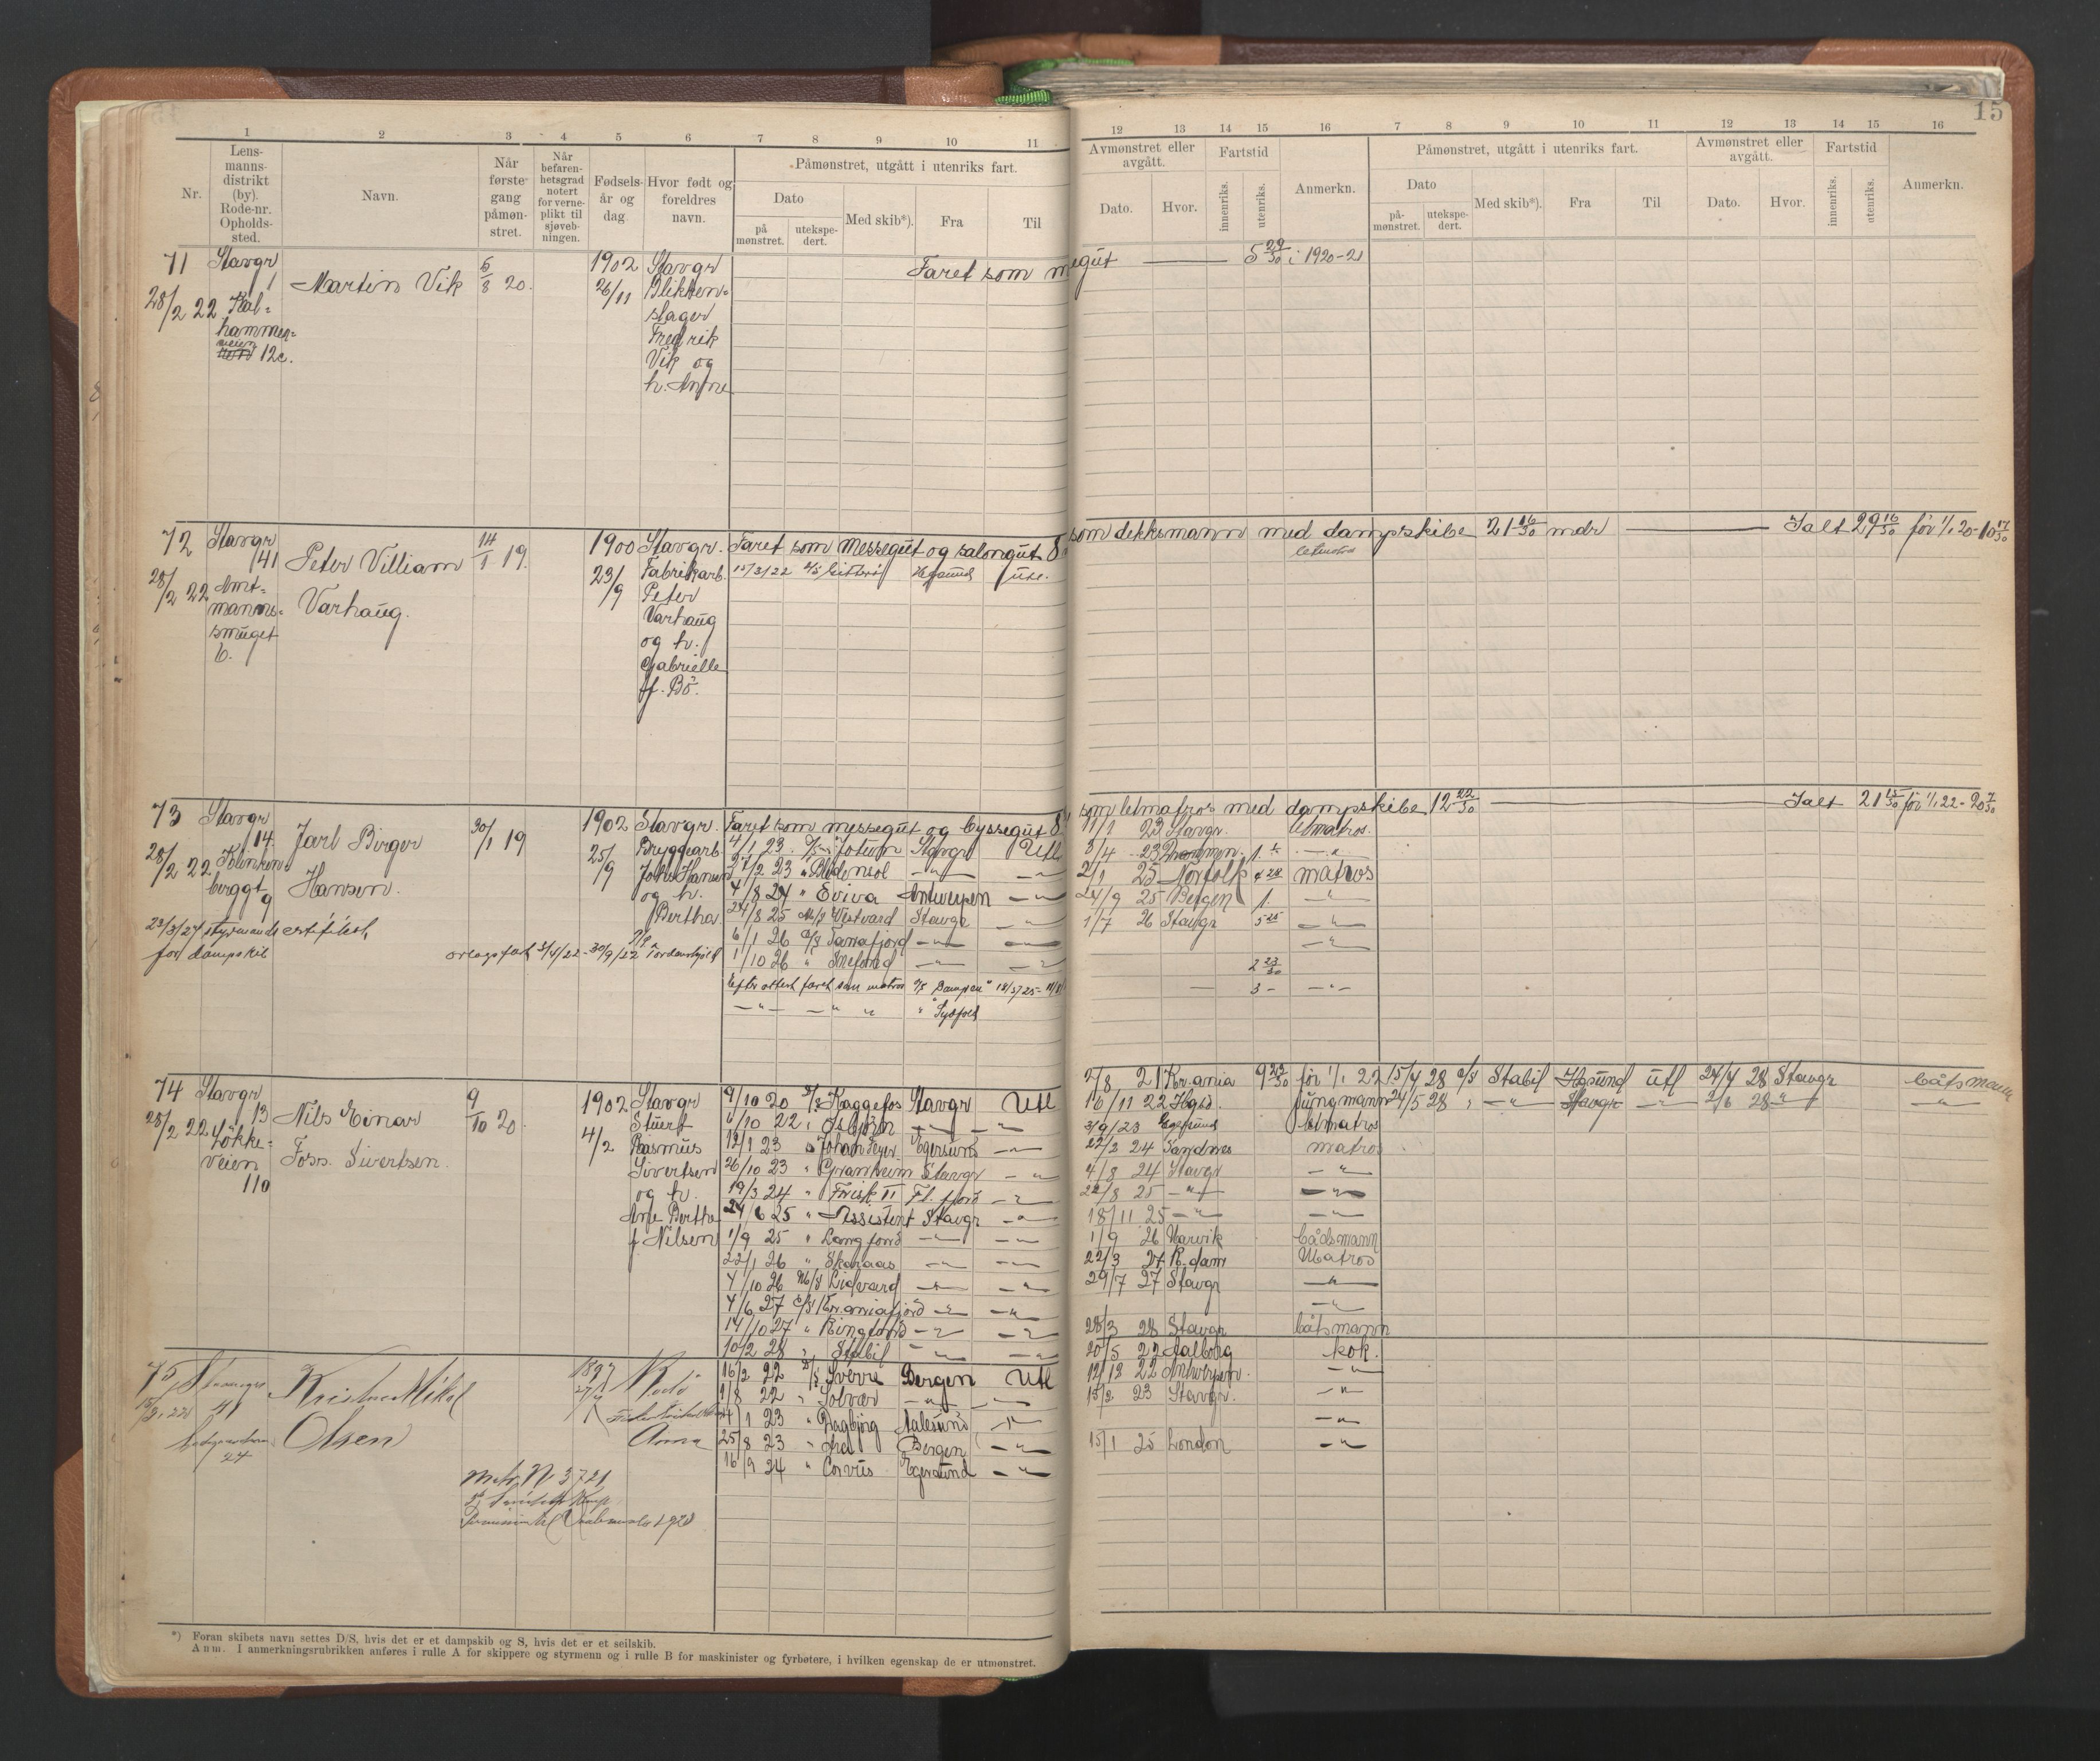 15
1 2 3 4 5 6 7 8 9 10 11
Nr.
Lens-
manns-
distrikt
(by).
Rode-nr.
Opholds-
sted.
Navn.
Når
første-
gang
påmøn-
stret.
Når
befaren-
hetsgrad
notert
for verne-
plikt til
sjøveb-
ningen.
Fødsels-
år og
dag
Hvor født og
foreldres
navn.
Påmønstret, utgått i utenriks fart.
Dato
på
mønstret.
utekspe-
dert.
Med skib*).
Fra
Til
12 13 14 15 16 7 8 9 10 11 12 13 14 15 16
Avmønstret eller
avgått.
Dato.
Hvor.
Fartstid
innenriks.
utenriks.
Anmerkn.
Påmønstret, utgått i utenriks fart.
Dato
på-
mønstret.
utekspe-
dert.
Med skib*).
Fra
Til
Avmønstret eller
avgått.
Dato.
Hvor.
Fartstid
innenriks.
utenriks.
Anmerkn.
71
28/2 22
Stavgr
1
Kal-
hammer-
veien
12c.
Martin Vik
5/8 20.
1902
26/11
Stavgr
Blikken-
slager
Fredrik
Vik og
h. Anne
Faret som megut — 5 29/30 i 1920-21
72
28/2 22
Stavgr
141
Amt-
manns-
smuget
6.
Peter Villiam
Varhaug.
14/1 19.
1900
23/9
Stavgr.
Fabrikarb.
Peter
Varhaug
og h.
Gabrielle
ff. Bö.
Faret som messegut og salongut 8
som dekksmann med dampskibe 21 16/30 mdr — Ialt 29 16/30 för 1/1 20-10 17/30
15/3/22 Hgsund utl.
letmatros
73
28/2 22
Stavgr
14
berggt
9
Jarl Birger
Hansen.
30/1 19
1902
25/9
Stavgr.
Bryggearb
Johs Hansen
og h.
Bertha
23/3/27 styrmandscertifikat,
for dampskib
orlogsfart 3/4/22-30/9/22 Tordenskjold
Faret som messegut og byssegut 8
som letmatros med dampskibe 12 22/30 — Ialt 21 15/30 för 1/1 22-20 7/30
4/1 23 D/S Jotum Stavgr Utl 11/1 23 Stavgr. letmatros.
27/2 23 " —"— —"— 3/4 23 Drammen. 1. —"—
4/8 24 " Eviva Antwerpen —"— 2/1 25 Norfolk 4 28 matros
24/8 25 M/S Vestvard Stavgr —"— 24/9 25 Bergen 1. —"—
6/1 26 D/S Tanafjord —"— —"— 1/7 26 Stavgr 5 25 —"—
1/10 26 " Snefond —"— —"— —"—
Efter attest faret som matros D/S "Bamsen" 18/3/25- 2 23/30
—"— —"— " " "Sydfold 3 - —"—
74
28/2 22
Stavgr
13
Lökke-
veien
110
Nils Einar
Foss. Sivertsen.
9/10 20
1902
4/2
Stavgr
Stuert
Rasmus
Sivertsen
og h.
Ane Berthe
f. Nilsen
9/10 20 D/S Kaggefos Stavgr Utl 2/8 21 Kr.ania 9 23/30 för 1/1 22 15/4 28 D/S Stabil Hgsund utl 24/4 28 Stavgr båtsmann
6/10 22 " Esbjörn —"— —"— 16/11 22 Hgsd. jungmann 24/5 28 " —"— Stavgr —"— 2/6 28 —"— —"—
12/1 23 " Johan Jeger. Egersund —"— 3/9/23 Egersund letmatros
26/10 23 " Granheim Stavgr —"— 22/2 24 Sandnes matros
19/3 24 " Frisk II Fl. fjord —"— 4/8 24 Stavgr —"—
24/6 25 " Assistent Stavgr —"— 22/8 25 —"— —"—
1/9 25 " Langfond —"— —"— 18/11 25 —"— —"—
22/1 26 " Skaraas —"— —"— 1/9 26 Narvik bådsmann
4/10 26 M/S Lidvard —"— —"— 22/3 27 R.dam Matros
4/6 27 D/S Kr.aniafjord —"— —"— 29/7 27 Stavgr —"—
14/10 27 " Ringfond —"— —"— —"—
10/2 28 " Stabil —"— —"— 28/3 28 Stavgr båtsmann
75
Stavanger
41
24
Kristian Mikal
Olsen
1897
Rodö
Anna
16/2 22 D/S Sverre Bergen Utl 20/5 22 Aalborg kok.
1/8 22 " Solvær —"— —"— 12/12 22 Antwerpen. —"—
24/1 23 " Dagbjörg Aalesund —"— 15/2 23 Stavgr. —"—
25/8 23 " Ira Bergen —"— —"—
16/9 24 " Corvus Egersund —"— 15/1 25 London —"—
Mstr. Nr 3721
*) Foran skibets navn settes D/S, hvis det er et dampskib og S, hvis det er et seilskib.
Anm. I anmerkningsrubrikken anføres i rulle A for skippere og styrmenn og i rulle B for maskinister og fyrbøtere, i hvilken egenskap de er utmønstret.